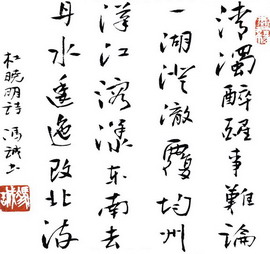 清濁醉醒事難論
一湖澄澈覆均州
漢江溶漾东南去
丹水逶迤改北流
杜晓明詩 冯誠书